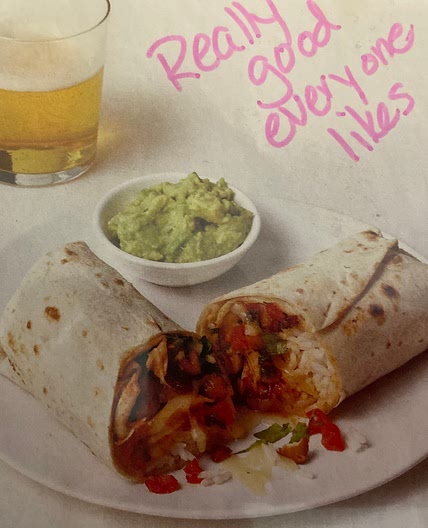 Really
good
everyone
likes